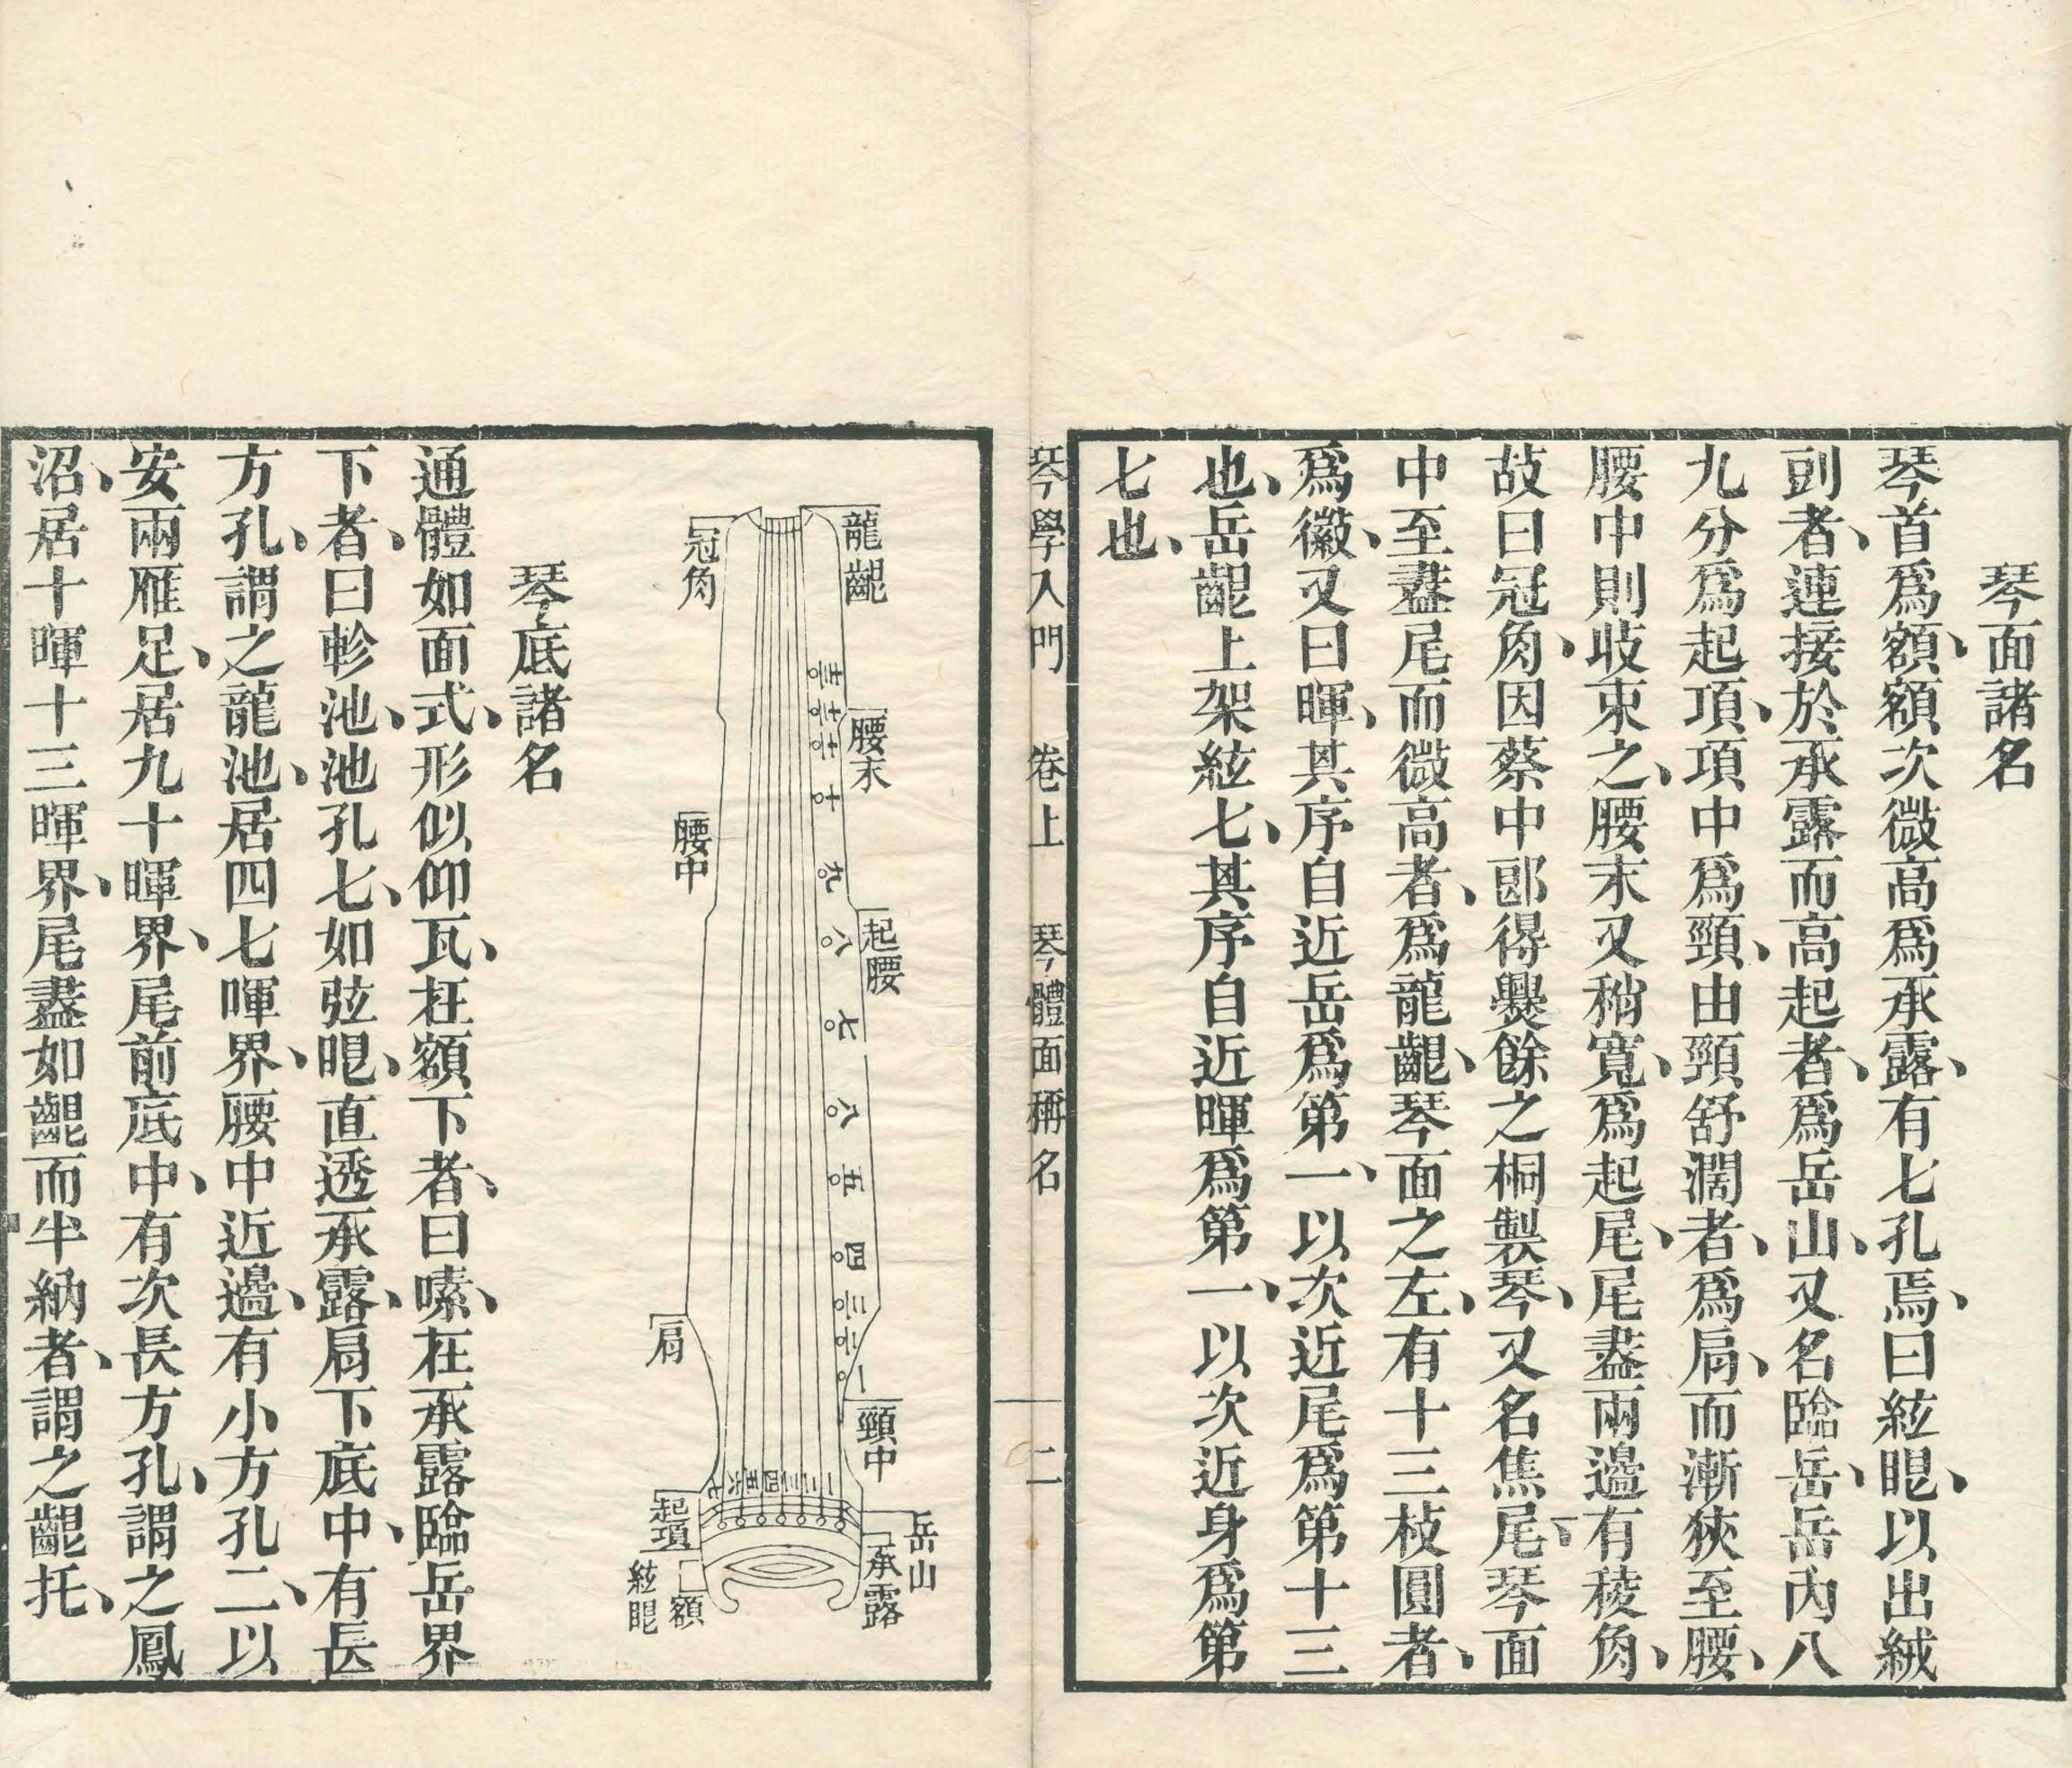 琴面諸名
琴首爲額、額次微高爲承露、有七孔焉、曰絃眼、以出絨
剅者、連接於承露而高起者、爲岳山、又名臨岳、岳內八
九分爲起項、項中爲頸、由頸舒濶者、爲肩、而漸狹至腰、
腰中則收束之、腰末又稍寬、爲起尾、尾盡兩邊有稜角、
故曰冠角、因蔡中郎得爨餘之桐製琴、又名焦尾、琴面
中至盡尾而微高者、爲龍齦、琴面之左、有十三枝圓者、
爲徽、又曰暉、其序自近岳爲第一、以次近尾爲第十三
也、岳齦上架絃七、其序自近暉爲第一、以次近身爲第
七也、
琴學入門 卷上 琴體面稱名 二
龍齦
冠角
腰末
腰中
起腰
肩
頸中
岳山
承露
起項
額
絃眼
十三
十二
十一
十
九
八
七
八
五
四
三
二
一
一
二
三
四
五
六
七
琴底諸名
通體如面式、形似仰瓦、在額下者、曰嗉、在承露臨岳界
下者、曰軫池、池孔七、如弦眼、直透承露、肩下底中、有長
方孔、謂之龍池、居四七暉界、腰中近邊、有小方孔二、以
安兩雁足、居九十暉界、尾前底中、有次長方孔、謂之鳳
沼、居十暉十三暉界、尾盡如齦而半納者、謂之齦托、